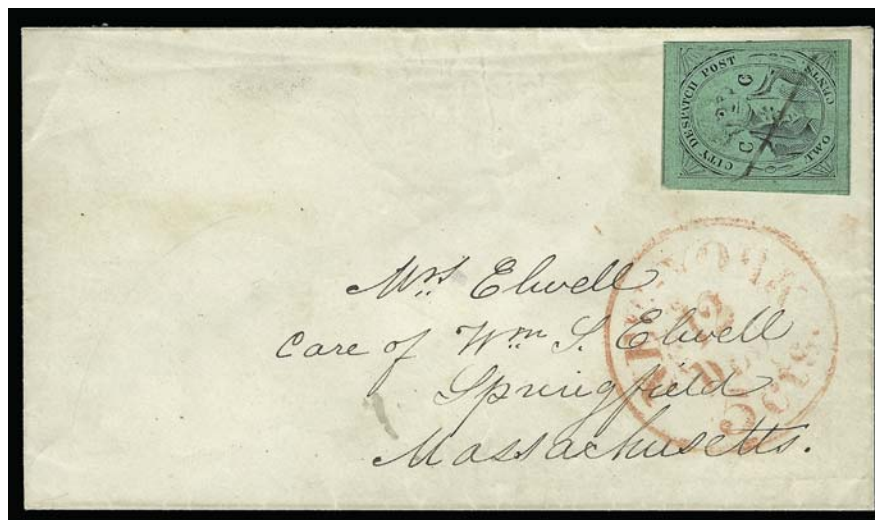 CITY DESPATCH POST
C C
TWO CENTS
NEW-YORK
5cts.
Mrs Elwell
care of Wm S. Elwell
Springfield
Massachusetts.